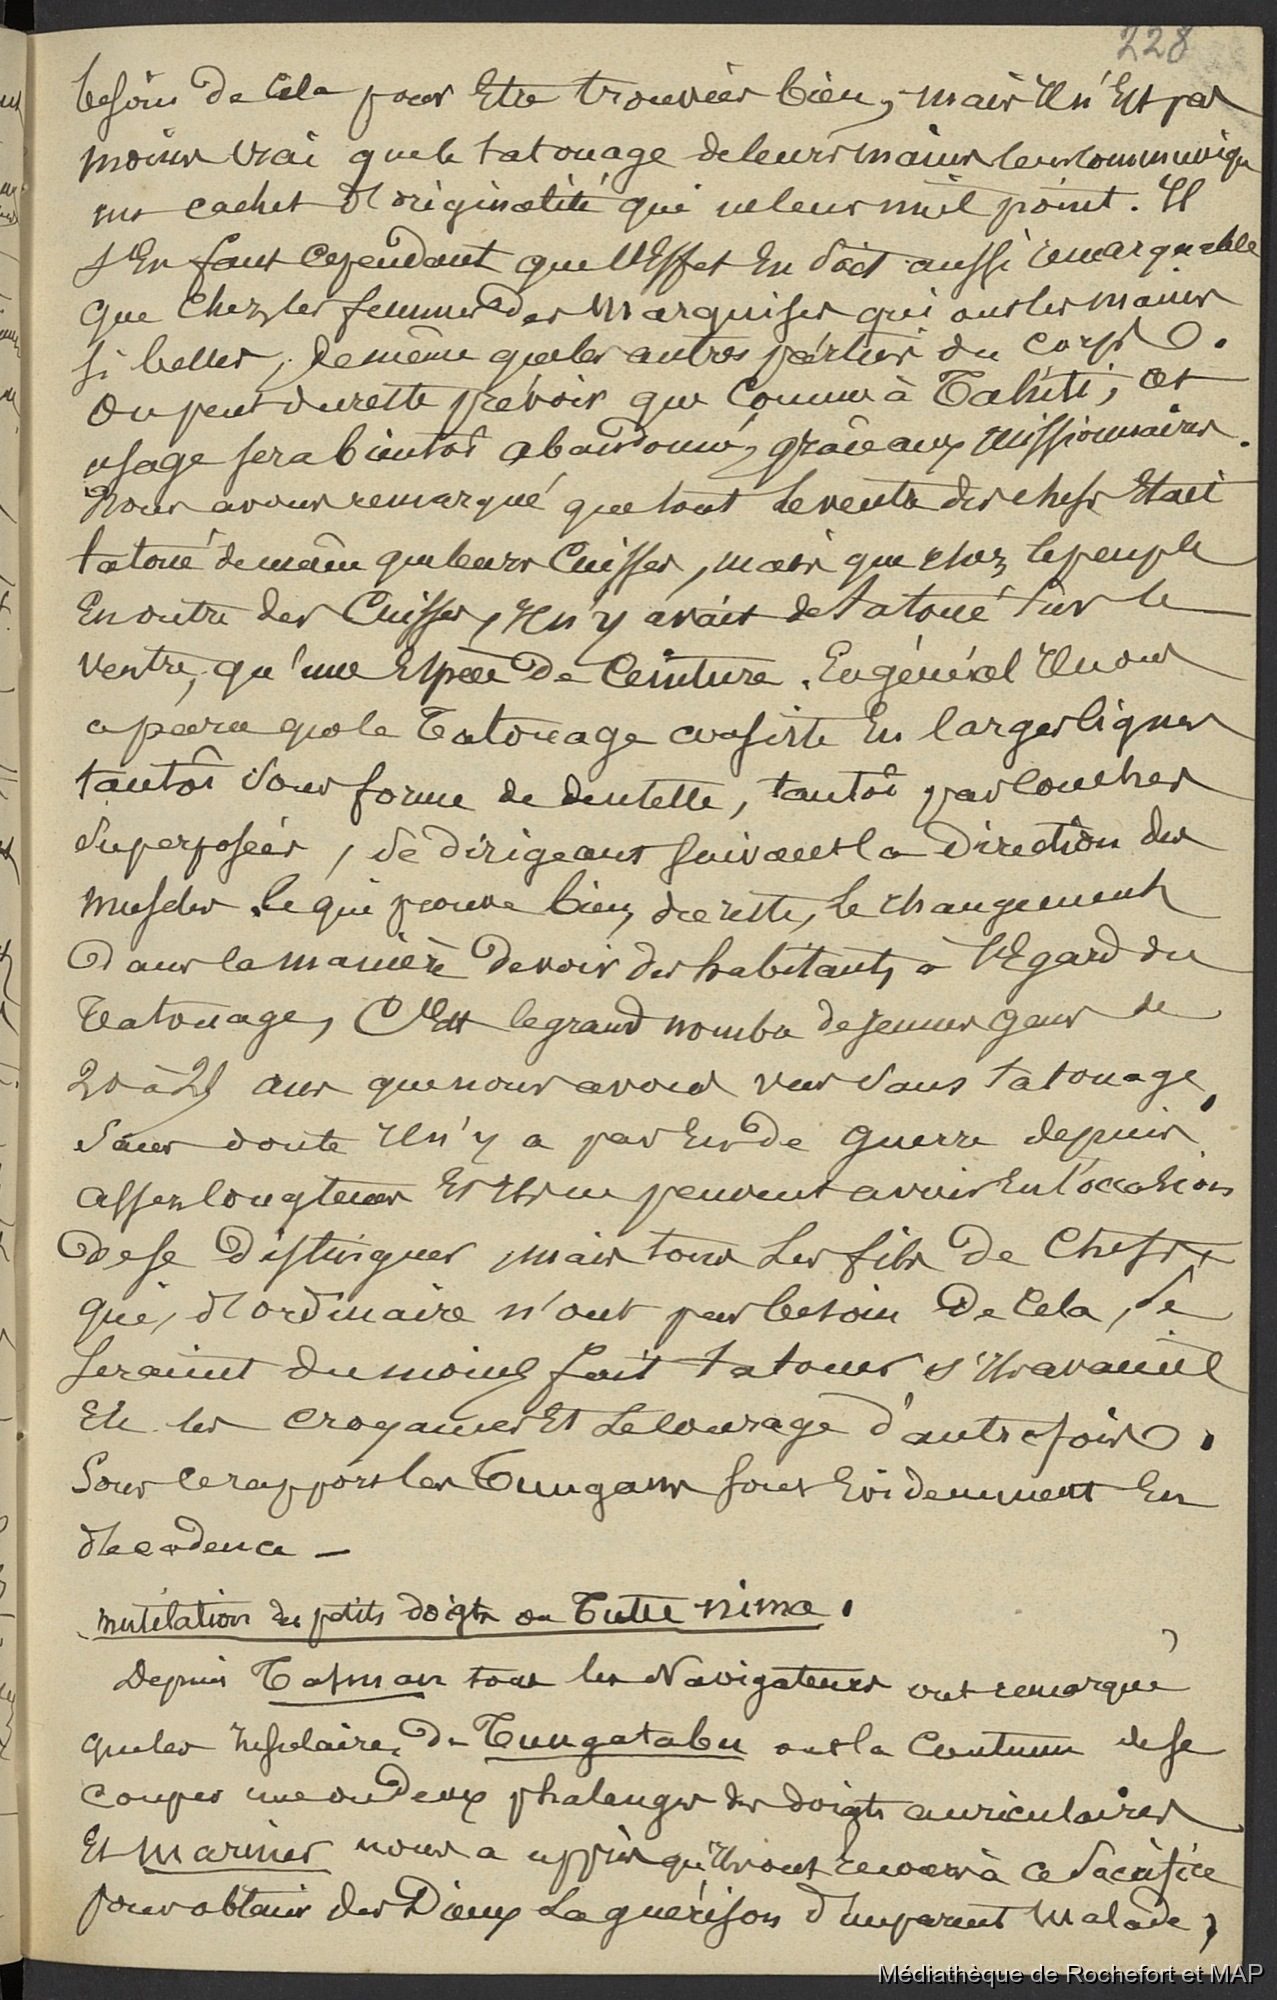 228
besoin de cela pour Etre trouvées bien, mais Il n'Est pas
moins vrai que le tatouage de leurs mains leur communique
un cachet d'originalité qui ne leur nuit point. Il
s'En faut cependant que l'Effet En soit aussi remarquable
que chez les femmes des Marquises qui ont les mains
si belles, de même que les autres parties du corps.
On peut du reste prévoir que comme à Tahiti, cet
usage sera bientôt abandonné, grâce aux missionnaires.
Nous avons remarqué que tout le ventre des chefs Etait
tatoué de même que leurs Cuisses, mais que chez le peuple
En outre des Cuisses, Il n'y avait de tatoué sur le
ventre, qu'une Espèce de Ceinture. En général Il nous
a paru que le Tatouage consiste En larges lignes
tantôt sous forme de dentelle, tantôt par couches
superposées, se dirigeant suivant la direction des
muscles. Ce qui prouve bien, du reste, le changement
Dans la manière de voir des habitants à l'Egard du
Tatouage, C'Est le grand nombre de jeunes gens de
20 à 25 ans que nous avons vus sans tatouage,
sans doute Il n'y a pas Eu de guerre depuis
assez longtemps Et Ils ne peuvent avoir Eu l'occasion
de se distinguer, mais tous les fils de Chefs
qui, d'ordinaire n'ont pas besoin de cela, se
seraient du moins fait tatouer s'Ils avaient
Eu les croyances Et le courage d'autrefois.
Sous ce rapport les Tungans sont Evidemment En
décadence —
mutilation des petits doigts ou Tutu nima.
Depuis Tasman tous les Navigateurs ont remarqué
que les Insulaires de Tungatabu ont la Coutume de se
couper une ou deux phalanges des doigts auriculaires
Et Mariner nous a appris qu'Ils ont recours à ce Sacrifice
pour obtenir des Dieux la guérison d'un parent malade,
Médiathèque de Rochefort et MAP